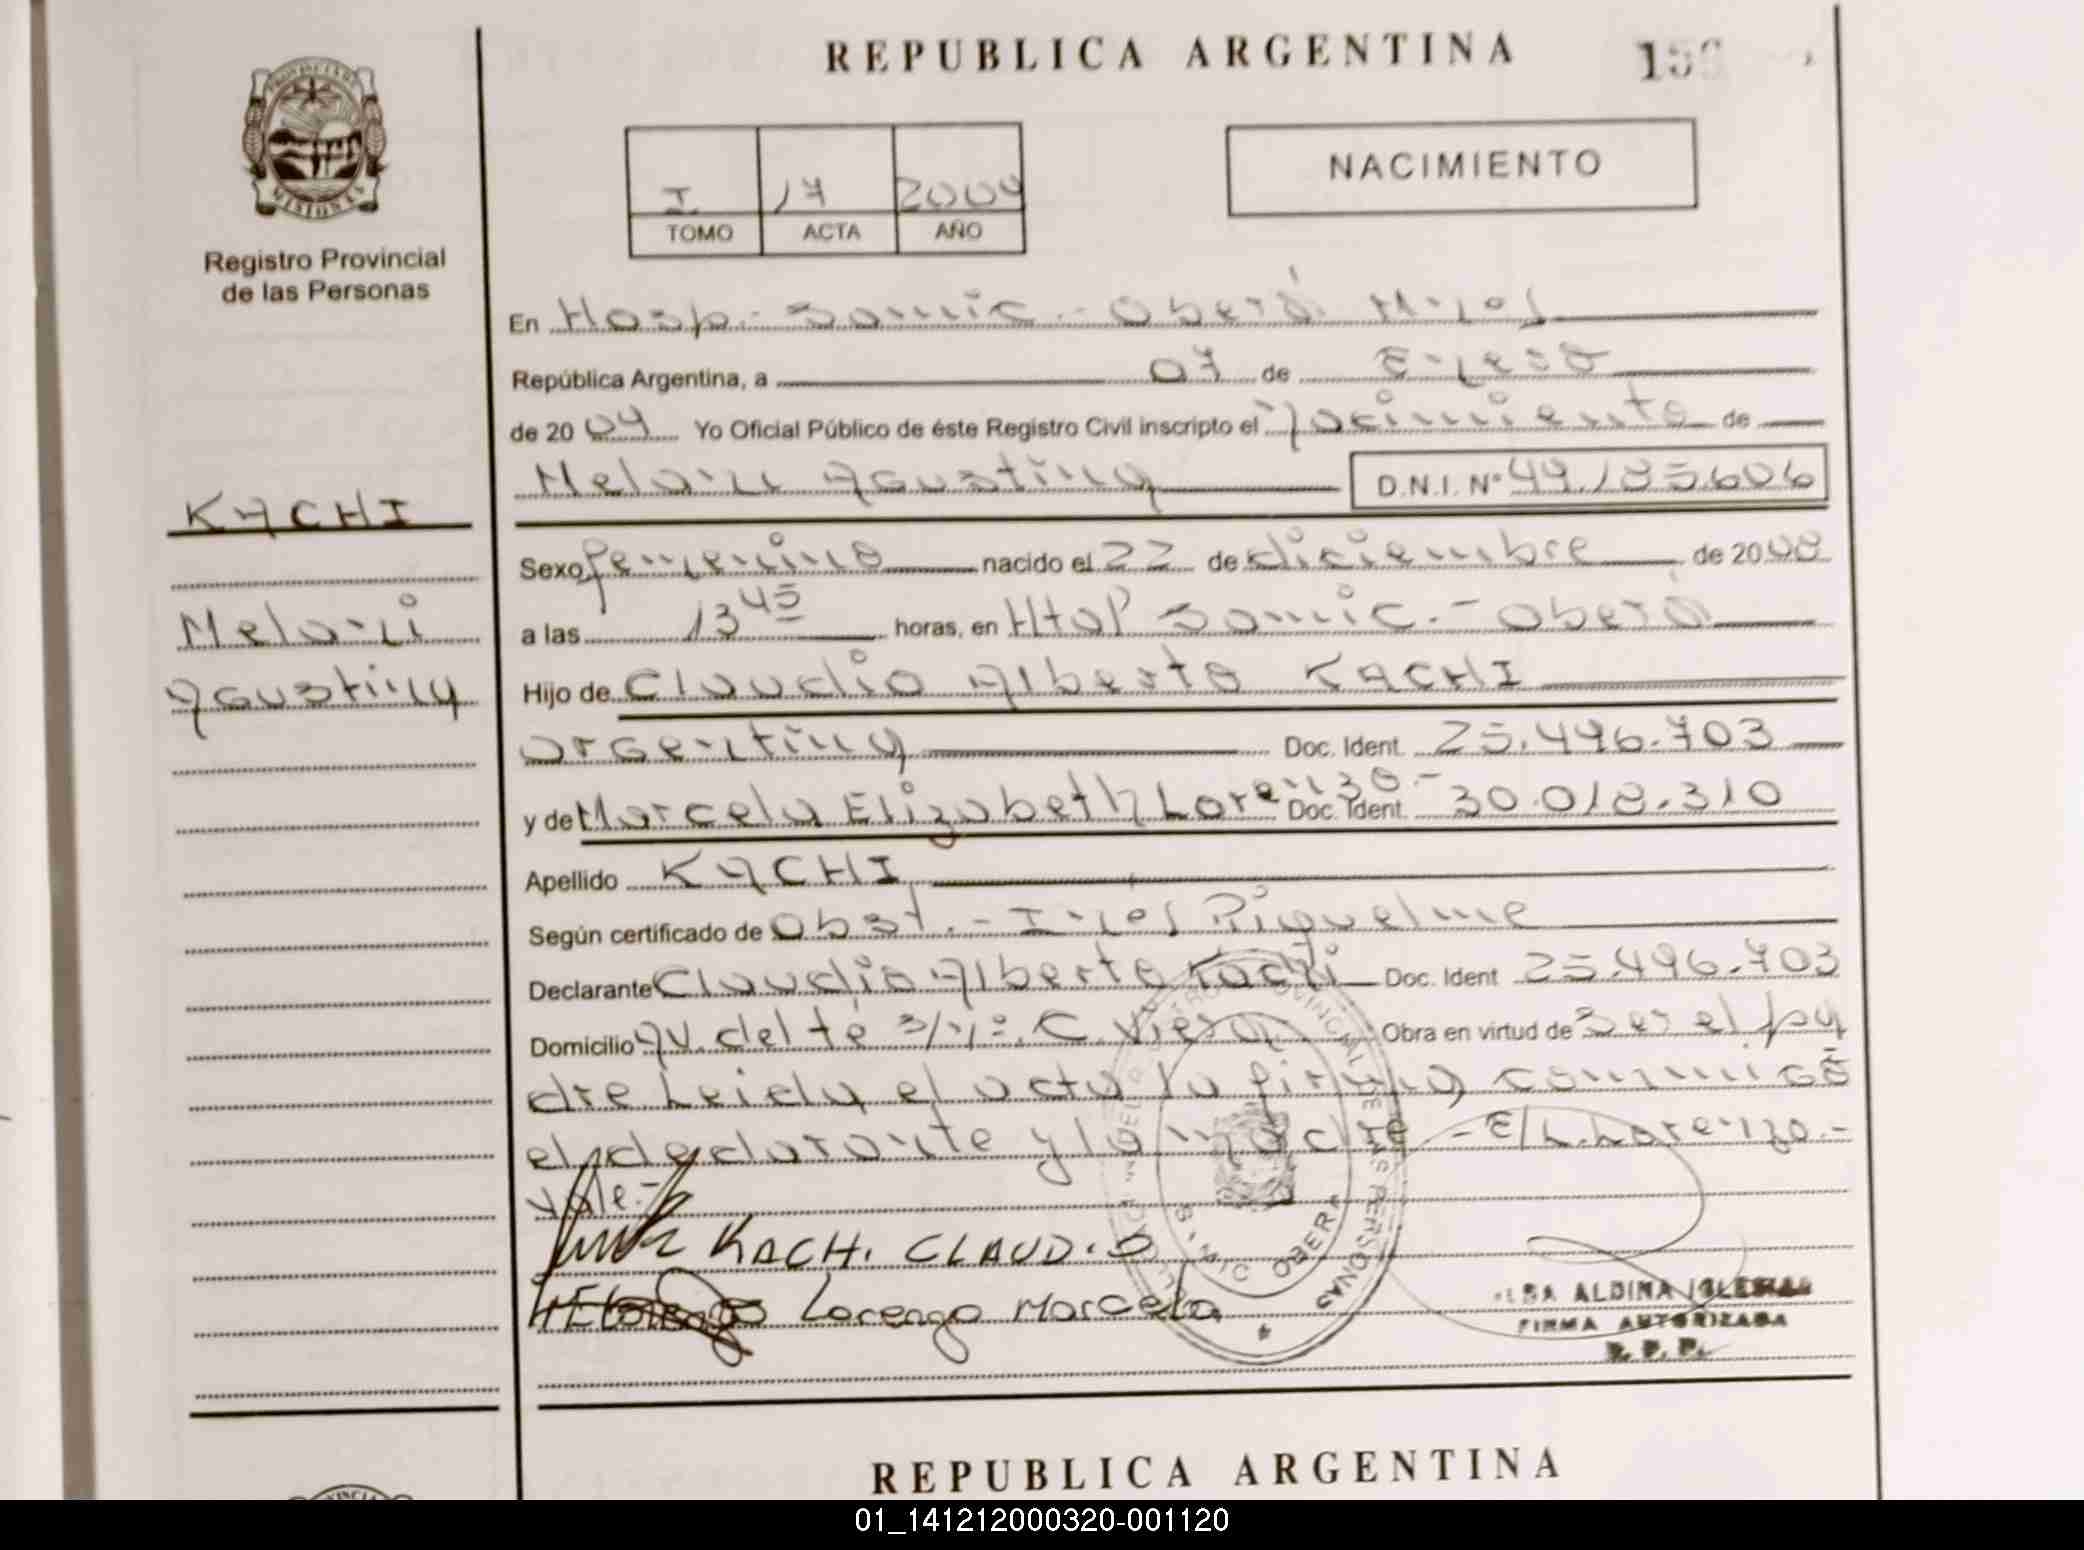 REPUBLICA ARGENTINA
PROVINCIA DE
MISIONES
Registro Provincial
de las Personas
I 17 2009
TOMO ACTA AÑO
NACIMIENTO
En Hosp.- Samic.- Oberá Mnes
República Argentina, a 07 de Enero
de 2009 Yo Oficial Público de éste Registro Civil inscripto el Nacimiento de
Melani Agustina D.N.I. Nº 49.185.606
KACHI
Melani
Agustina
Sexo femenino nacido el 22 de diciembre de 2008
a las 13 45 horas, en Htal Samic.- Oberá
Hijo de Claudio Alberto KACHI
argentina Doc. Ident. 25.496.703
y de Marcela Elizabeth Lorenzo.- Doc. Ident. 30.018.310
Apellido KACHI
Según certificado de Obst.- Ines Riquelme
Declarante Claudio Alberto Kachi Doc. Ident 25.496.703
Domicilio Av. del té s/nº. C. Viera Obra en virtud de Ser el pa
dre Leida el acta la firman conmigo
el declarante y la madre - E/L.Lorenzo.-
Vale.-
KACHI CLAUDIO
Lorenzo Marcela
ALDINA IGLESIAS
FIRMA AUTORIZADA
R. P. P.
REPUBLICA ARGENTINA
01_141212000320-001120